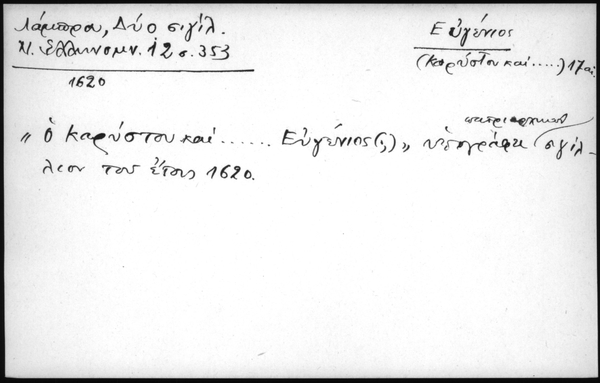 Λάμπρου, Δύο σιγίλ.
Ν. Ἑλληνομν. 12 σ. 353
1620
Εὐγένιος
(Καρύστου καὶ .....) 17 αἰ.
„ ὁ Καρύστου καὶ ...... Εὐγένιος (;) „ ὑπογράφει πατριαρχικὸν σιγίλ-
λιον τοῦ ἔτους 1620.